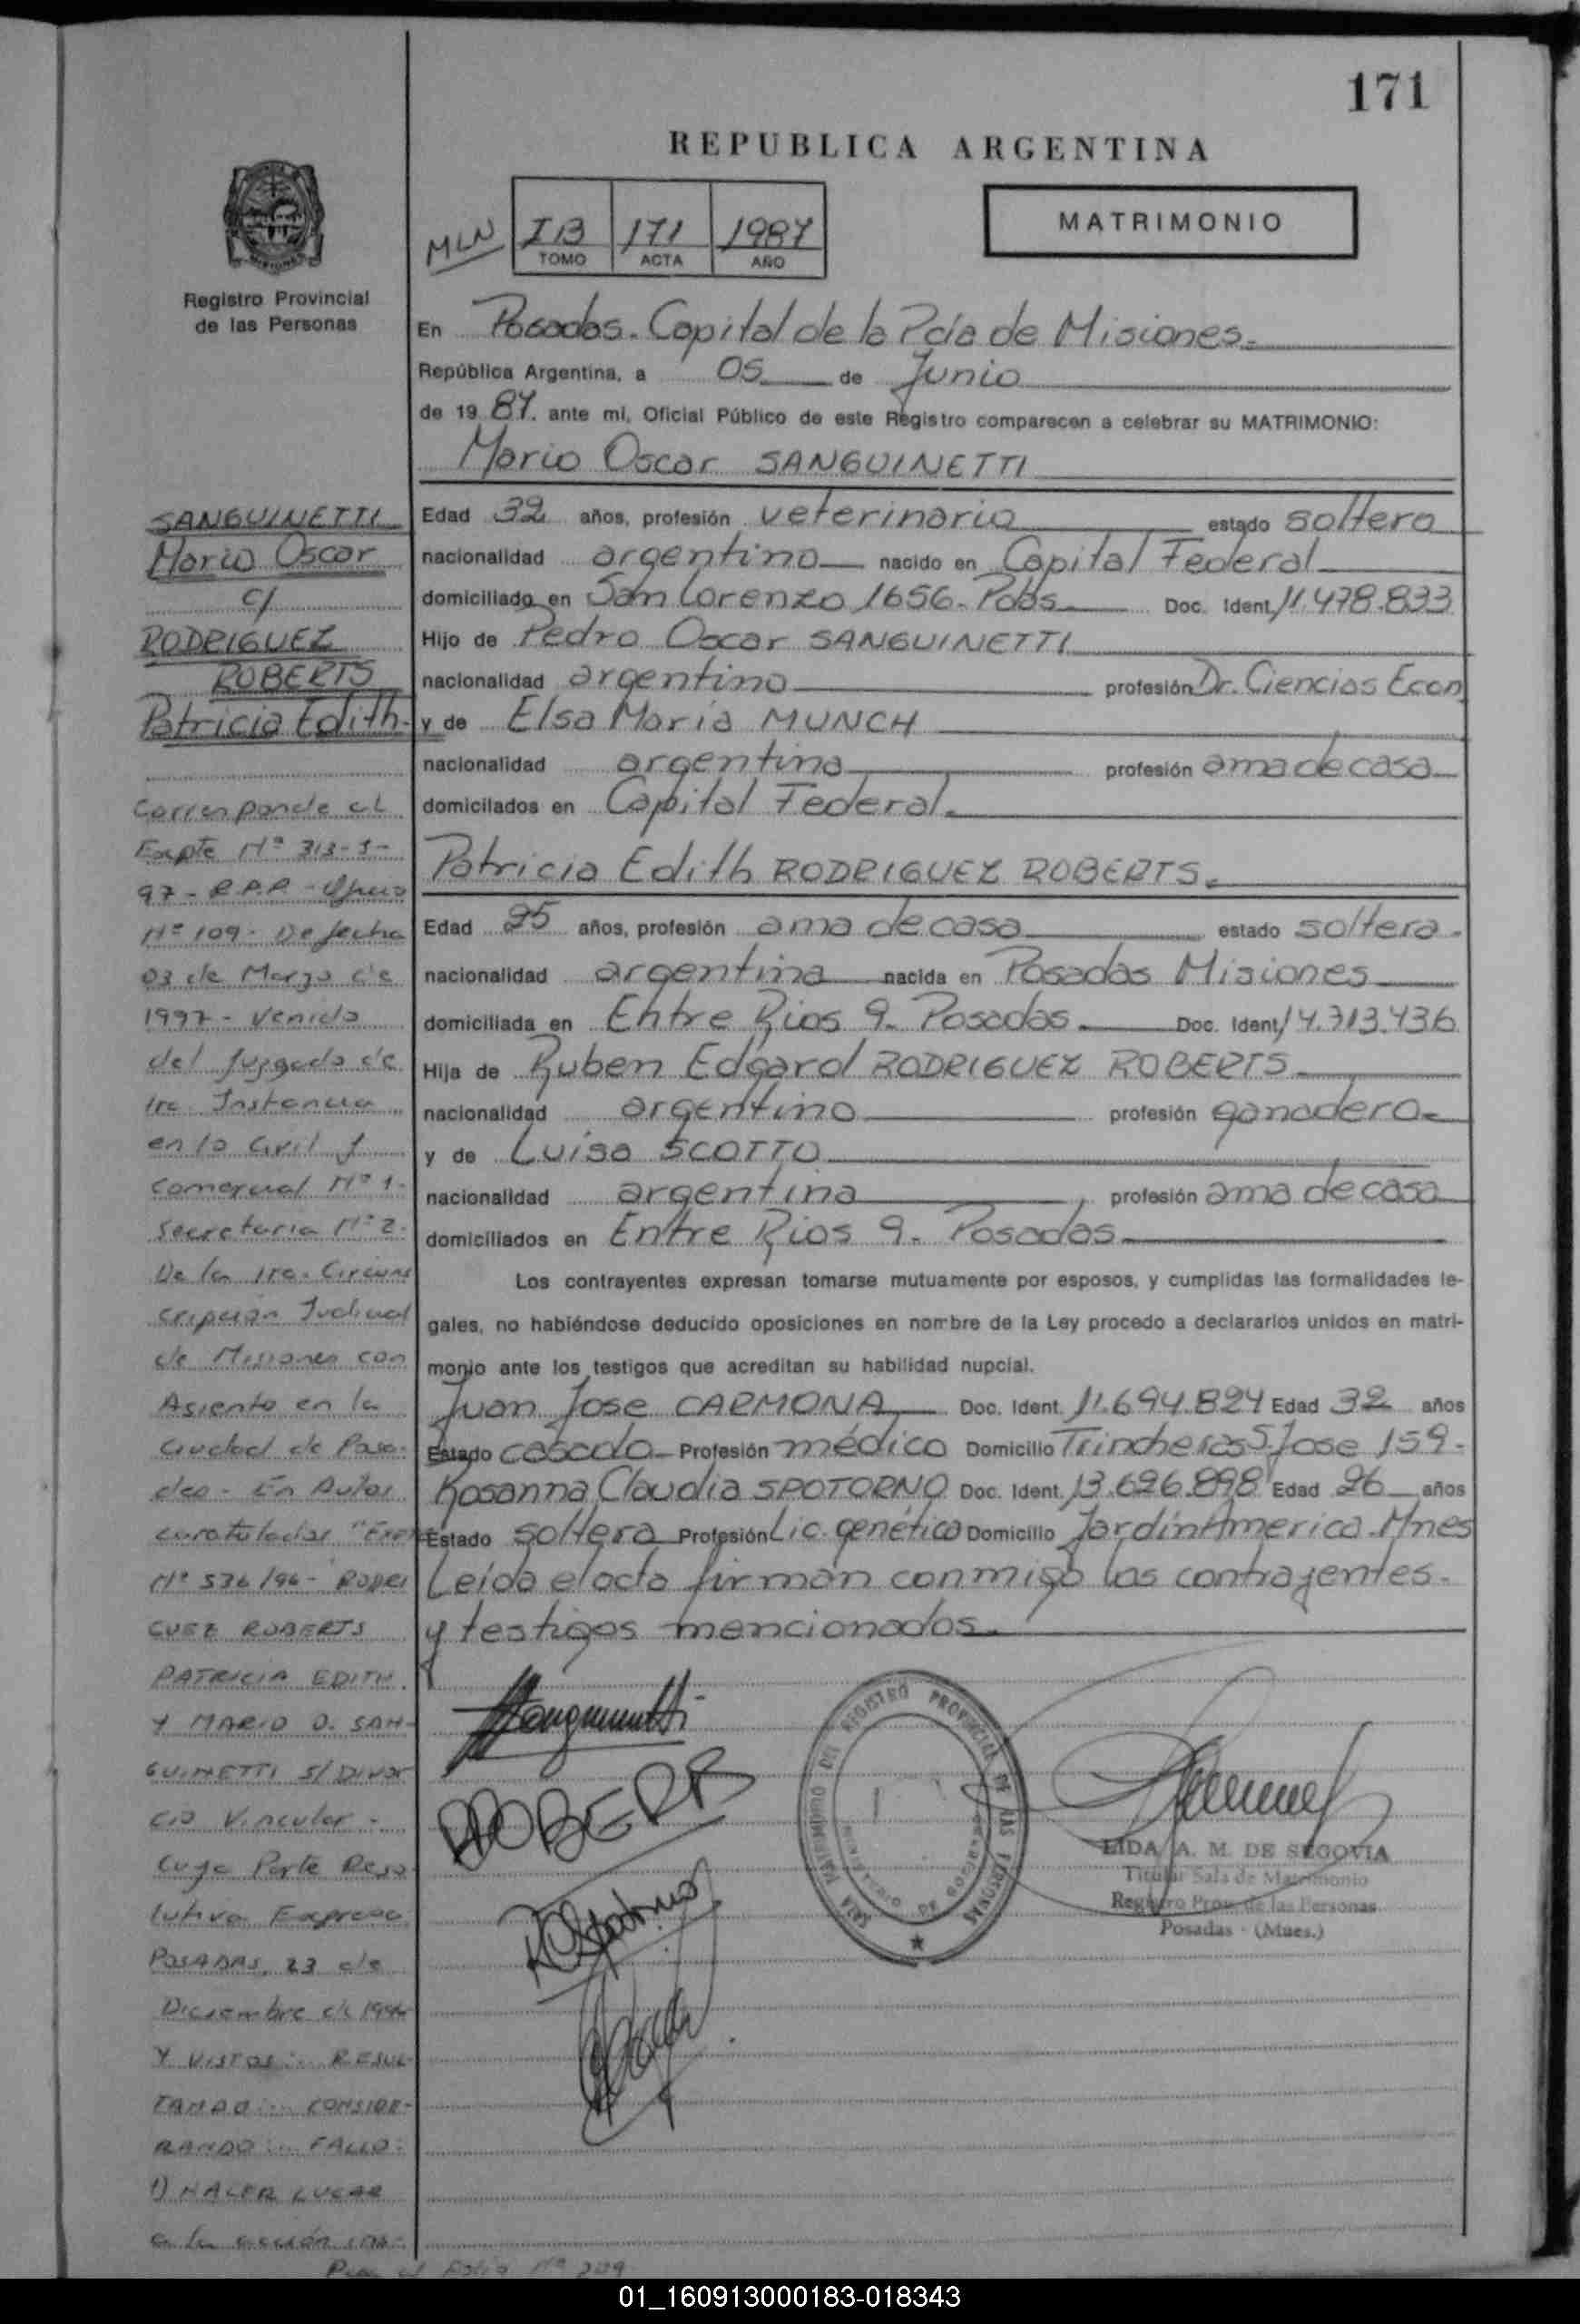 171
REPUBLICA ARGENTINA
MISIONES
Registro Provincial
de las Personas
MLN
IB 171 1987
TOMO ACTA AÑO
MATRIMONIO
En Posadas. Capital de la Pcia de Misiones.
República Argentina, a 05 de Junio
de 1987. ante mí, Oficial Público de este Registro comparecen a celebrar su MATRIMONIO:
Mario Oscar SANGUINETTI
Edad 32 años, profesión veterinario estado soltero
nacionalidad argentino nacido en Capital Federal
domiciliado en San Lorenzo 1656. Pdas. Doc. Ident. 11.478.833
Hijo de Pedro Oscar SANGUINETTI
nacionalidad argentino profesión Dr. Ciencias Econ
y de Elsa María MUNCH
nacionalidad argentina profesión ama de casa
domicilados en Capital Federal.
Patricia Edith RODRIGUEZ ROBERTS.
Edad 25 años, profesión ama de casa estado soltera.
nacionalidad argentina nacida en Posadas Misiones
domiciliada en Entre Rios 9. Posadas. Doc. Ident. 14.713.436
Hija de Ruben Edgard RODRIGUEZ ROBERTS
nacionalidad argentino profesión ganadero.
y de Luisa SCOTTO
nacionalidad argentina profesión ama de casa
domiciliados en Entre Rios 9. Posadas.
Los contrayentes expresan tomarse mutuamente por esposos, y cumplidas las formalidades le-
gales, no habiéndose deducido oposiciones en nombre de la Ley procedo a declararlos unidos en matri-
monio ante los testigos que acreditan su habilidad nupcial.
Juan Jose CARMONA Doc. Ident. 11.694.824 Edad 32 años
Estado casado Profesión médico Domicilio Trincheras S. Jose 159.
Rosanna Claudia SPOTORNO Doc. Ident. 13.626.898 Edad 26 años
Estado soltera Profesión Lic. genética Domicilio Jardín America. Mnes
Leída el acta firman conmigo los contrayentes.
y testigos mencionados.
SALA MATRIMONIO DEL REGISTRO PROVINCIAL DE LAS PERSONAS
LIDA A. M. DE SEGOVIA
Titular Sala de Matrimonio
Registro Prov. de las Personas
Posadas - (Mnes.)
SANGUINETTI
Mario Oscar
c/
RODRIGUEZ
ROBERTS
Patricia Edith.
Corresponde al
Expte Nº 313-S-
97 - R.P.P. - Oficio
Nº 109 - De fecha
03 de Marzo de
1997 - Venido
del Juzgado de
1ra. Instancia
en lo Civil y
Comercial Nº 1.
Secretaria Nº 2.
De la 1ra. Circuns
cripción Judicial
de Misiones con
Asiento en la
Ciudad de Posa-
das - En Autos
caratulados "Expte
Nº 536/96 - RODRI
GUEZ ROBERTS
PATRICIA EDITH
Y MARIO O. SAN-
GUINETTI S/ DIVOR
cio Vincular -
Cuya Parte Reso
lutiva Expresa
POSADAS, 23 de
Diciembre de 1996
Y VISTOS: RESUL-
TANDO: CONSIDE-
RANDO: FALLO:
1) HACER LUGAR
a la acción
Folio Nº 209
01_160913000183-018343